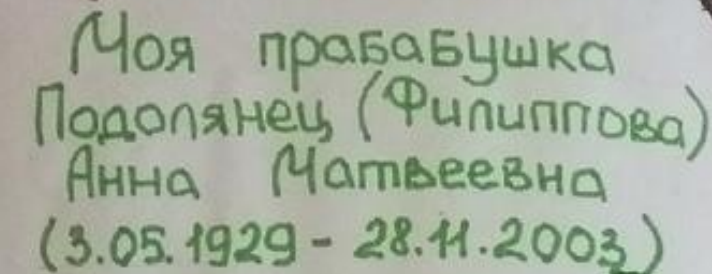 Моя прабабушка
Подолянец (Филиппова)
Анна Матвеевна
(3.05.1929 - 28.11.2003)